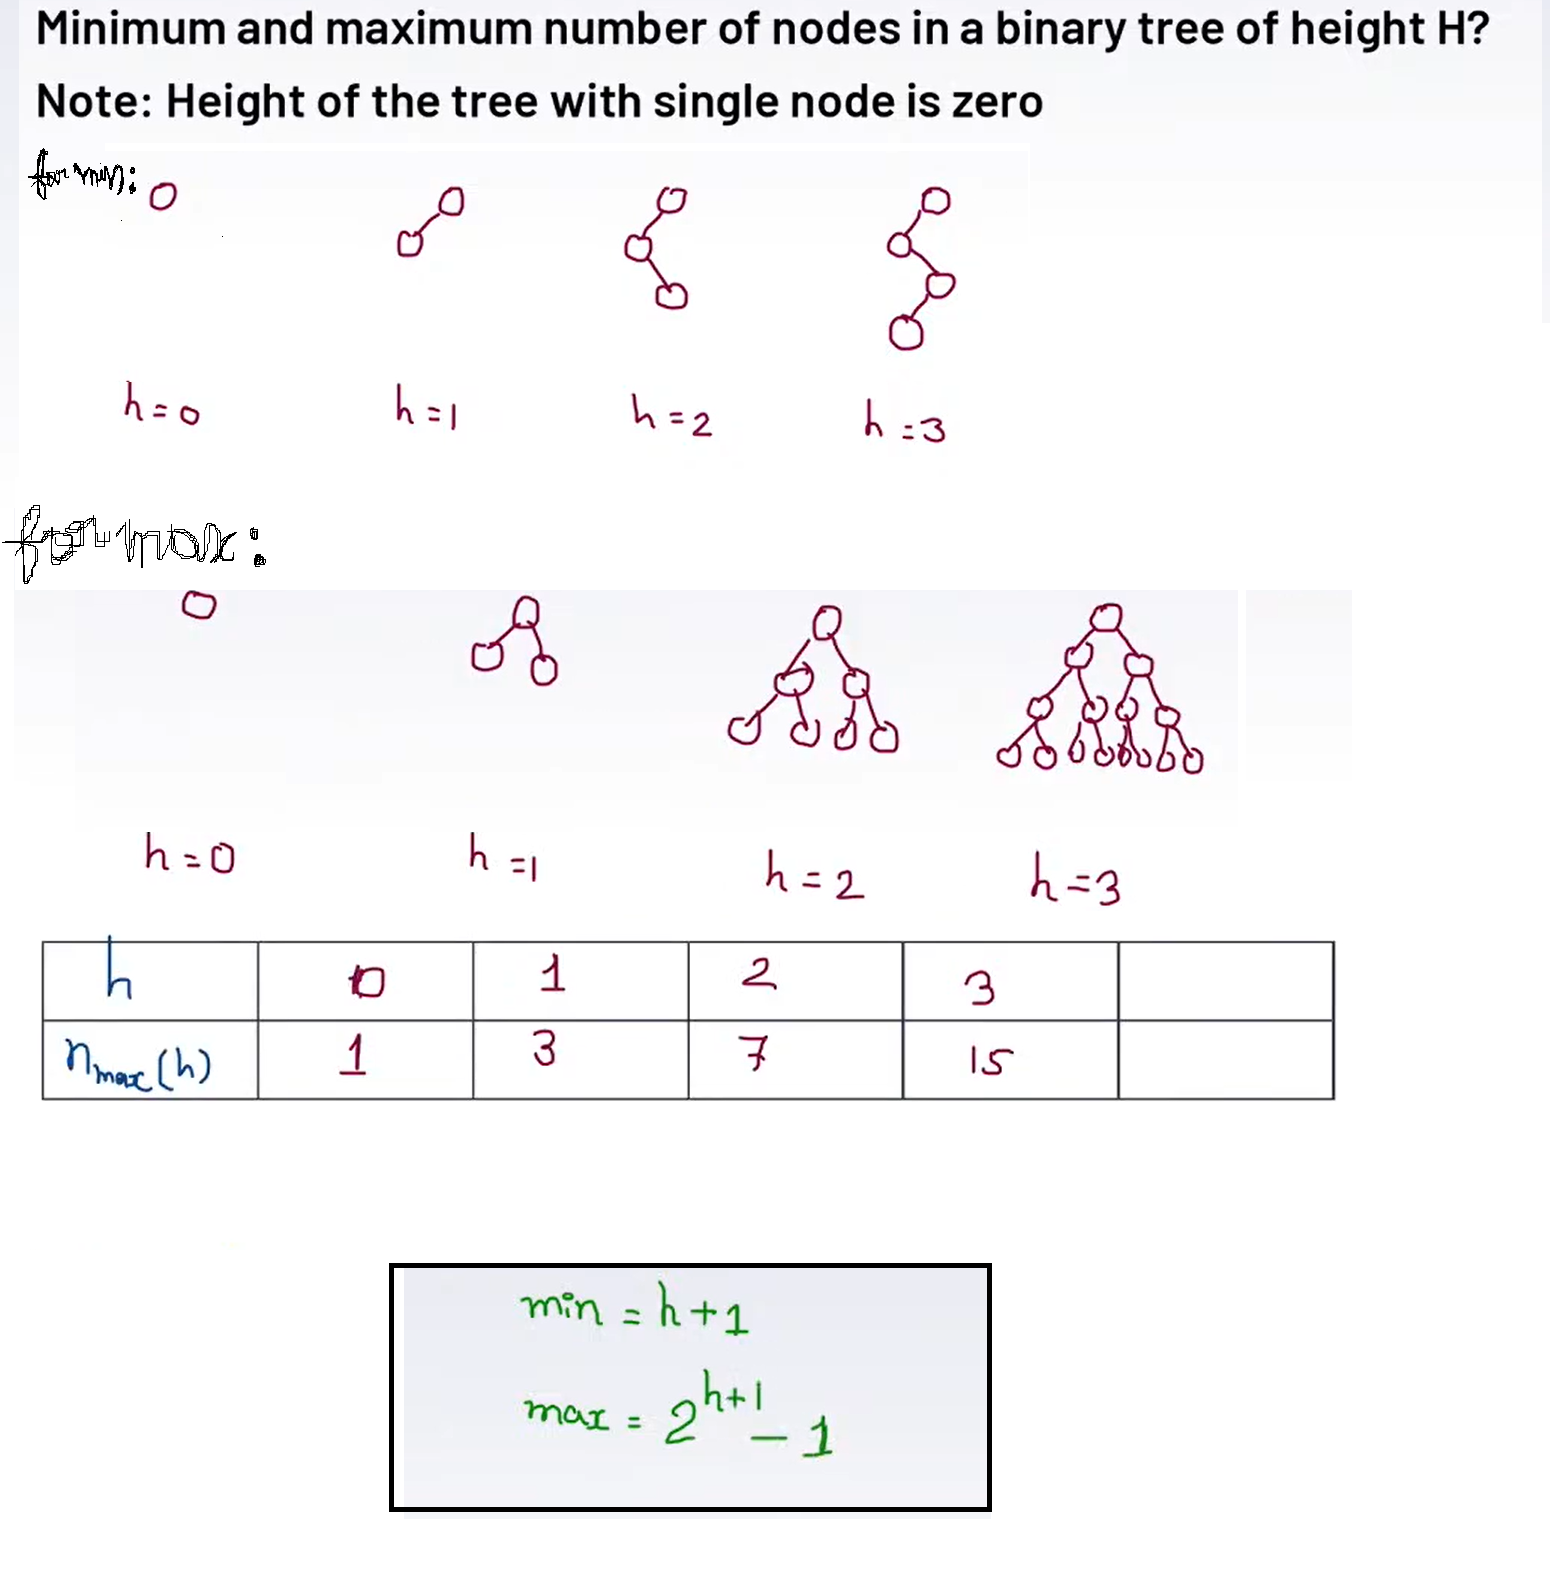 Minimum and maximum number of nodes in a binary tree of height H?
Note: Height of the tree with single node is zero
for min:
h=0 h=1 h=2 h=3
for max:
h=0 h=1 h=2 h=3
h 0 1 2 3
nmax(h) 1 3 7 15
min = h+1
max = 2^h+1 - 1